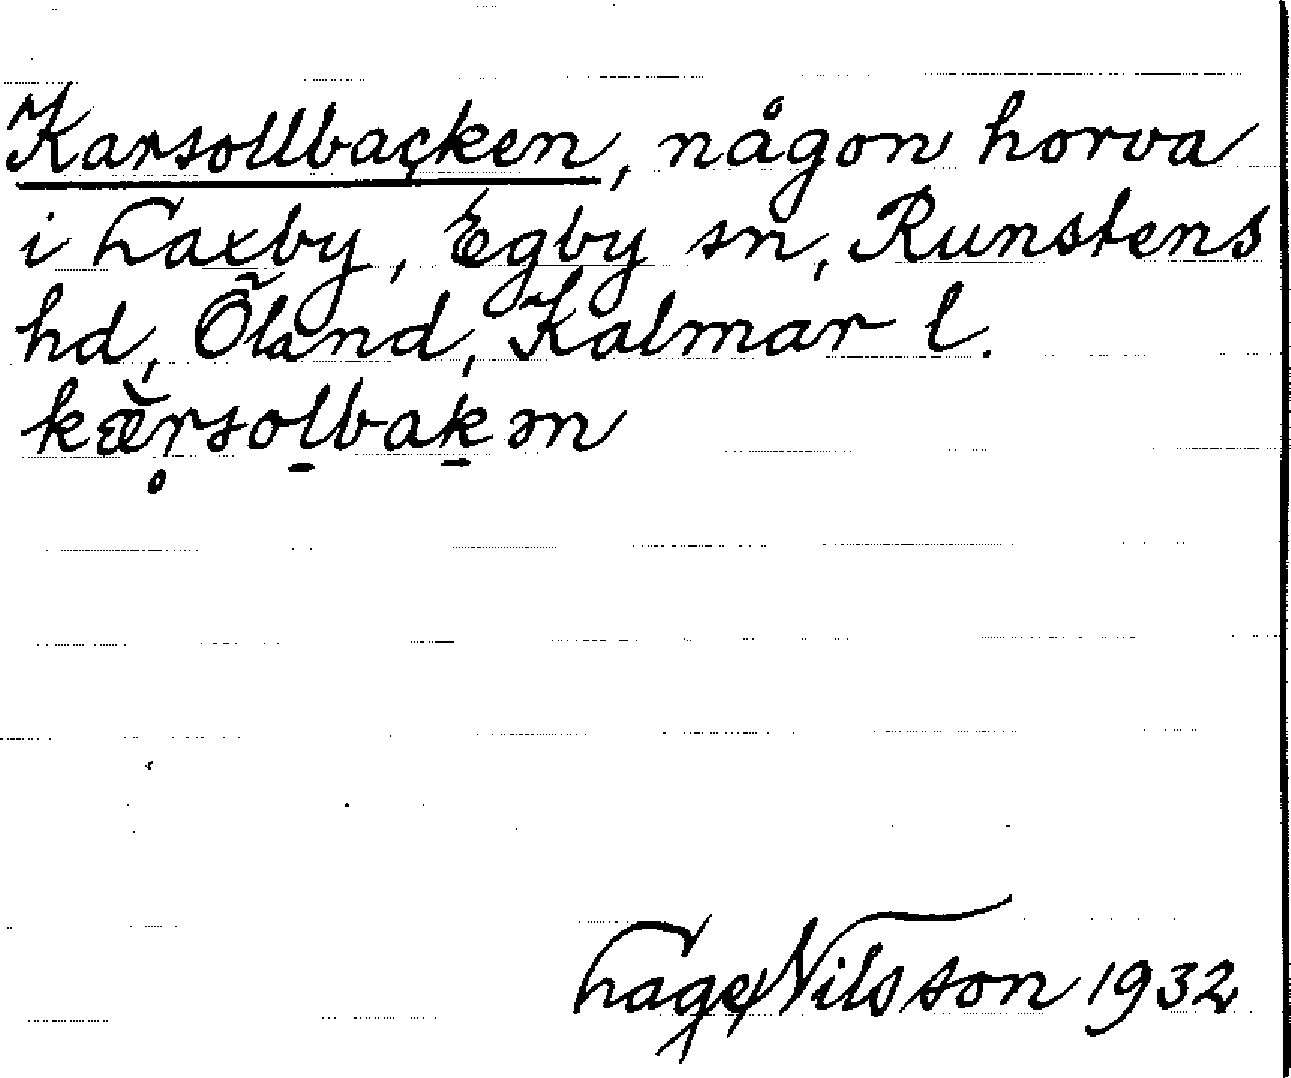 Karsollbacken, någon horva
i Laxby, Egby sn, Runstens
hd, Öland, Kalmar l.
kæ̆r̥sol̠bak̠ən
Lage Nilsson 1932